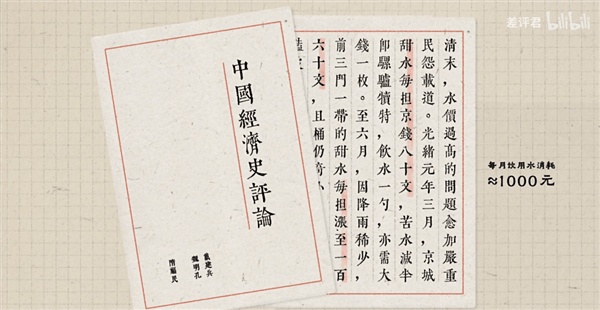 差评君 bilibili
中國經濟史評論
戴建兵
魏明孔
隋福民
清末，水價過高的問題愈加嚴重
民怨載道。光緒元年三月，京城
甜水每担京錢八十文，苦水減半
卽騾驢犢特，飲水一勺，亦需大
錢一枚。至六月，因降雨稀少，
前三門一帶的甜水每担漲至一百
六十文，且桶仍奇小
每月饮用水消耗
≈1000元